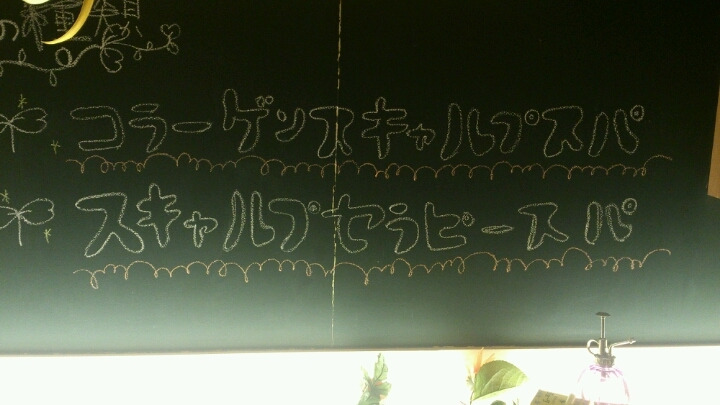 の種類
コラーゲンスキャルプスパ
スキャルプセラピースパ